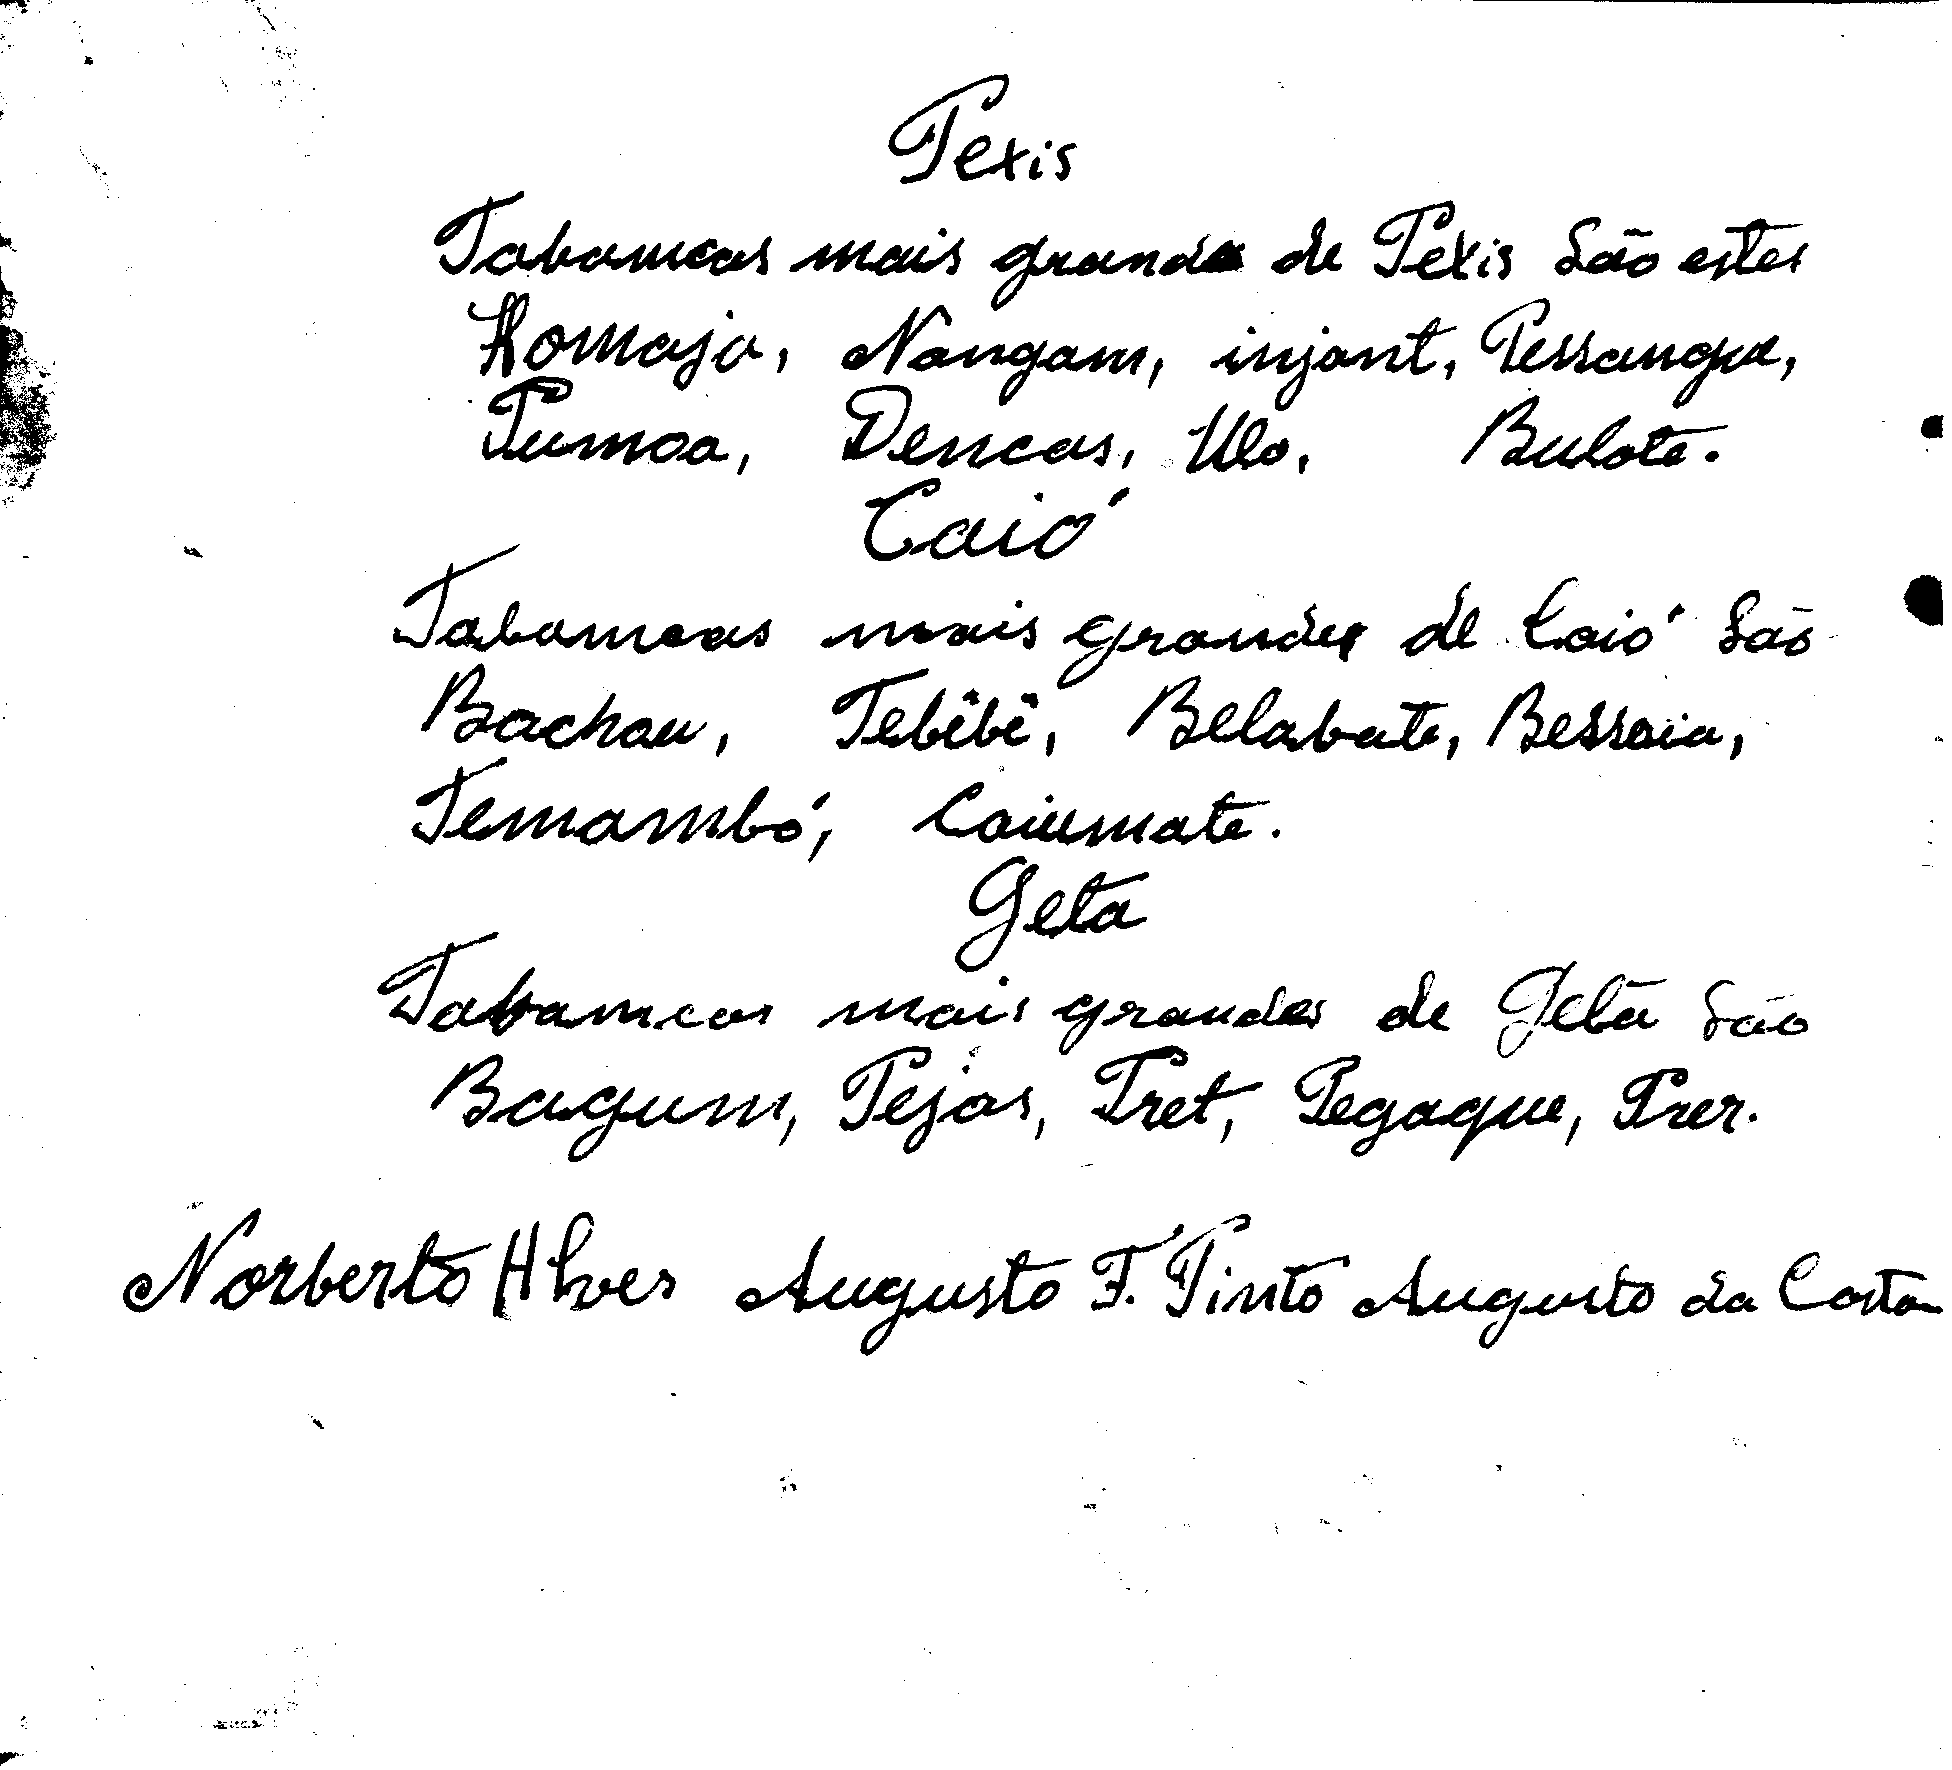 Pexis
Tabamcas mais grandes de Pexis São estes
Komaja, Nangam, injant, Pessangue,
Pumoa, Dencas, Ulo, Bulote.
Caió
Tabamcas mais grandes de Caió São
Bachau, Tebêbê, Belabate, Bessaia,
Temambó, Caiumate.
Geta
Tabamcas mais grandes de Geta São
Bagum, Pejas, Pret, Pegaque, Prer.
Norberto Alves Augusto F. Pinto Augusto da Costa